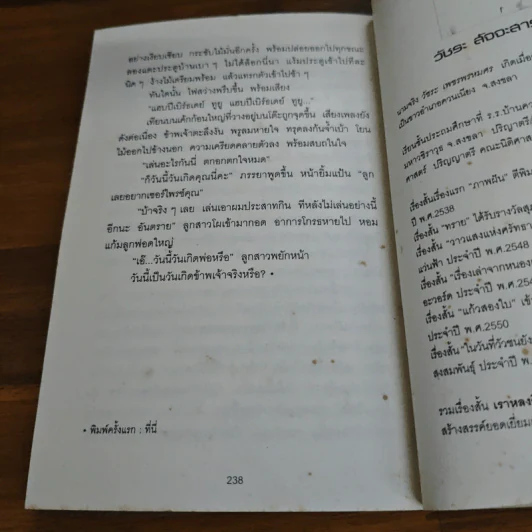 อย่างเงียบเชียบ กระชับไม้มั่นอีกครั้ง พร้อมปล่อยออกไปทุกขณะ
ลองแตะประตูบ้านเบา ๆ ไม่ได้ล็อกนี่นา แง้มประตูเข้าไปทีละ
นิด ๆ ง้างไม้เตรียมพร้อม แล้วแทรกตัวเข้าไปช้า ๆ
ทันใดนั้น ไฟสว่างพรึบขึ้น พร้อมเสียง
"แฮปปี้เบิร์ธเดย์ ทูยู แฮปปี้เบิร์ธเดย์ ทูยู..."
เทียนบนเค้กก้อนใหญ่ที่วางอยู่บนโต๊ะถูกจุดขึ้น เสียงเพลงยัง
ดังต่อเนื่อง ข้าพเจ้าตะลึงงัน พรูลมหายใจ ทรุดลงกับจ้ำเบ้า โยน
ไม้ออกไปข้างนอก ความเครียดคลายตัวลง พร้อมสบถในใจ
"เล่นอะไรกันนี่ ตกอกตกใจหมด"
"ก็วันนี้วันเกิดคุณนี่คะ" ภรรยาพูดขึ้น หน้ายิ้มแป้น "ลูก
เลยอยากเซอร์ไพรซ์คุณ"
"บ้าจริง ๆ เลย เล่นเอาผมประสาทกิน ทีหลังไม่เล่นอย่างนี้
อีกนะ อันตราย" ลูกสาวโผเข้ามากอด อาการโกรธหายไป หอม
แก้มลูกฟอดใหญ่
"เอ๊...วันนี้วันเกิดพ่อหรือ" ลูกสาวพยักหน้า
วันนี้เป็นวันเกิดข้าพเจ้าจริงหรือ? •
• พิมพ์ครั้งแรก : ที่นี่
238
วัชระ สัจจะสาร
นามจริง วัชระ เพชรพรหมศร เกิดเมื่อ
เป็นชาวอำเภอควนเนียง จ.สงขลา
เรียนชั้นประถมศึกษาที่ ร.ร.บ้าน
มหาวชิราวุธ จ.สงขลา ปริญญาตรี
ศาสตร์ ปริญญาตรี คณะนิติศาสตร์
เรื่องสั้นเรื่องแรก "ภาพฝัน" ตีพิม
ปี พ.ศ.2538
เรื่องสั้น "ทราย" ได้รับรางวัล
เรื่องสั้น "ราวแสงแห่งศรัทธา
แว่นฟ้า ประจำปี พ.ศ.2548
เรื่องสั้น "เรื่องเล่าจากหนอง
อะวอร์ด ประจำปี พ.ศ.254
เรื่องสั้น "แก้วสองใบ" เข้
ประจำปี พ.ศ.2550
เรื่องสั้น "ในวันที่วัวชนยัง
สุงสมพันธุ์ ประจำปี พ.
รวมเรื่องสั้น เราหลงลื
สร้างสรรค์ยอดเยี่ยม